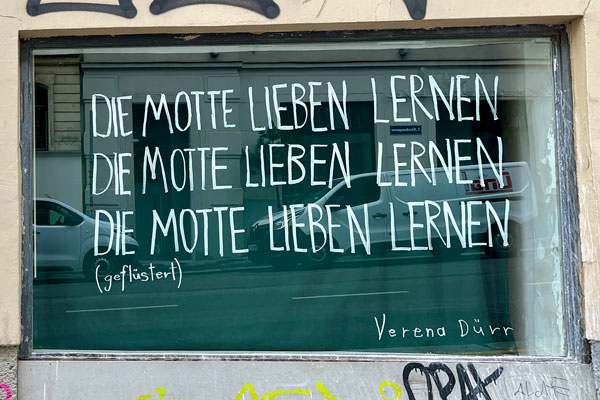 DIE MOTTE LIEBEN LERNEN
DIE MOTTE LIEBEN LERNEN
DIE MOTTE LIEBEN LERNEN
(geflüstert)
Verena Dürr